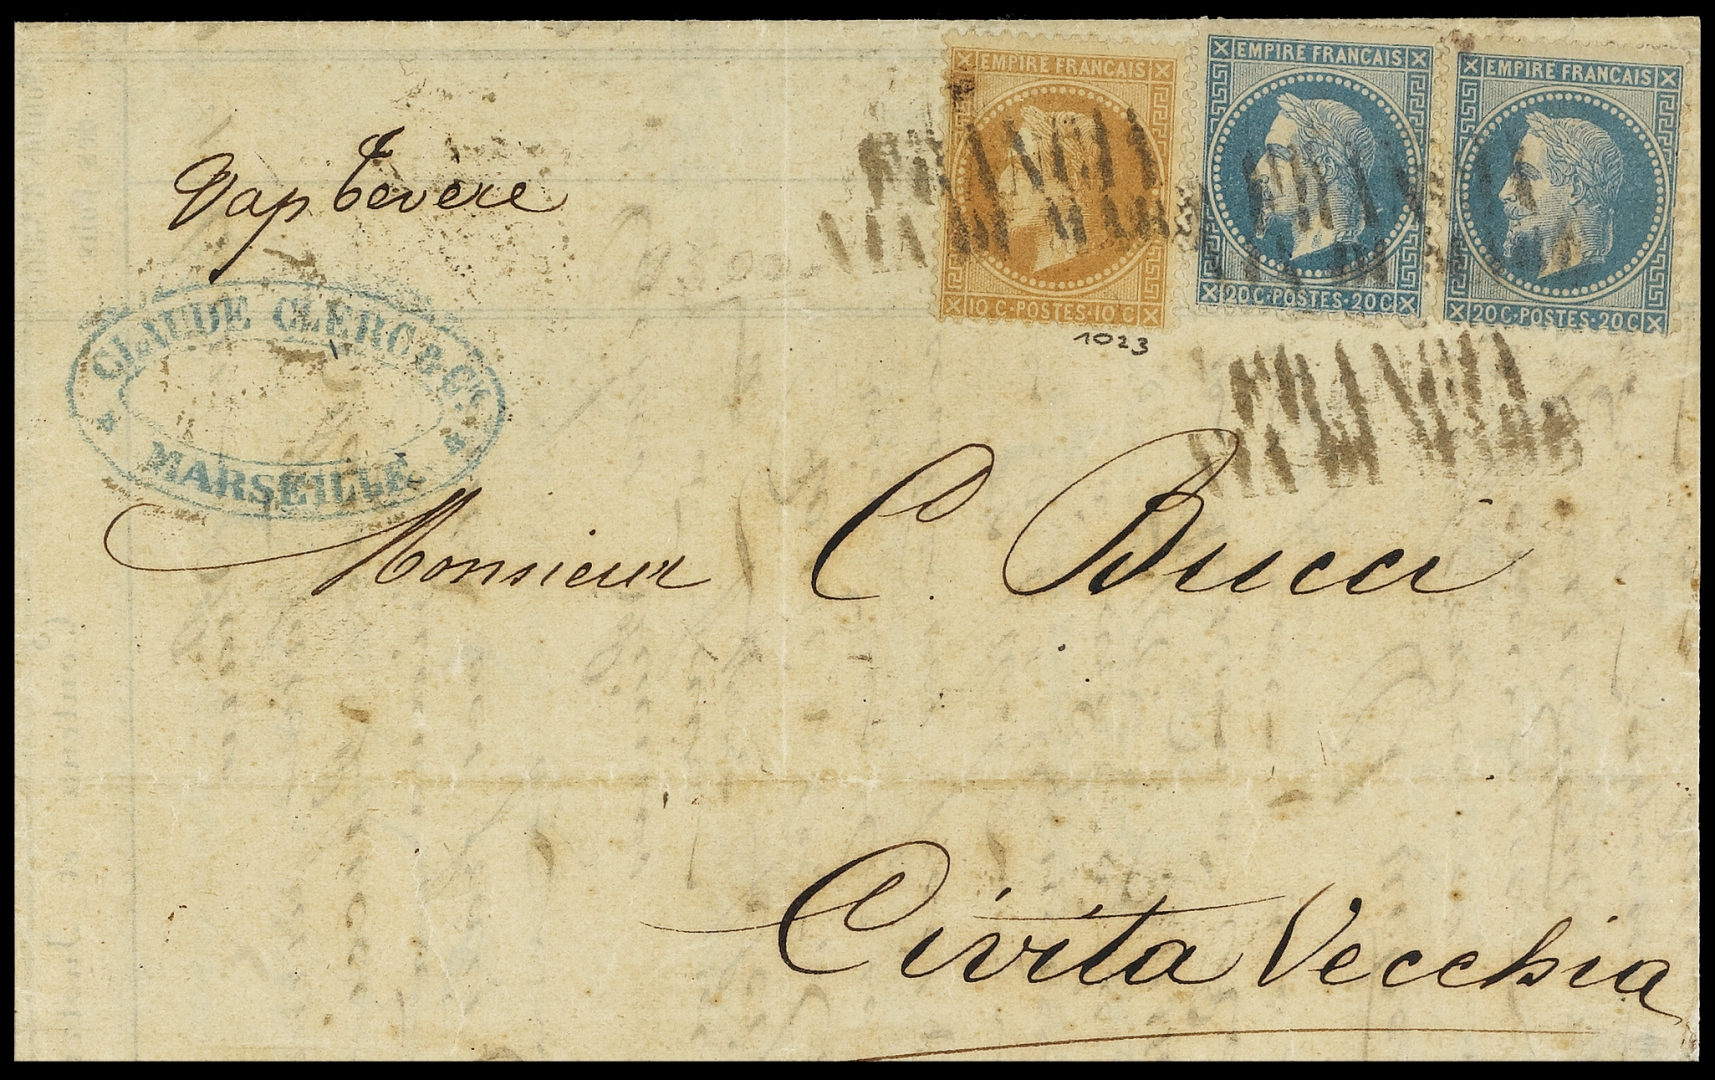 EMPIRE FRANCAIS
10 C·POSTES·10 C
EMPIRE FRANCAIS
20 C·POSTES·20 C
EMPIRE FRANCAIS
20 C·POSTES·20 C
FRANCIA
VIA DI MARE
FRANCIA
VIA DI MARE
1023
FRANCIA
VIA DI MARE
Vap Tevere
CLAUDE CLERC & Cie
MARSEILLE
Monsieur C. Bucci
Civita Vecchia